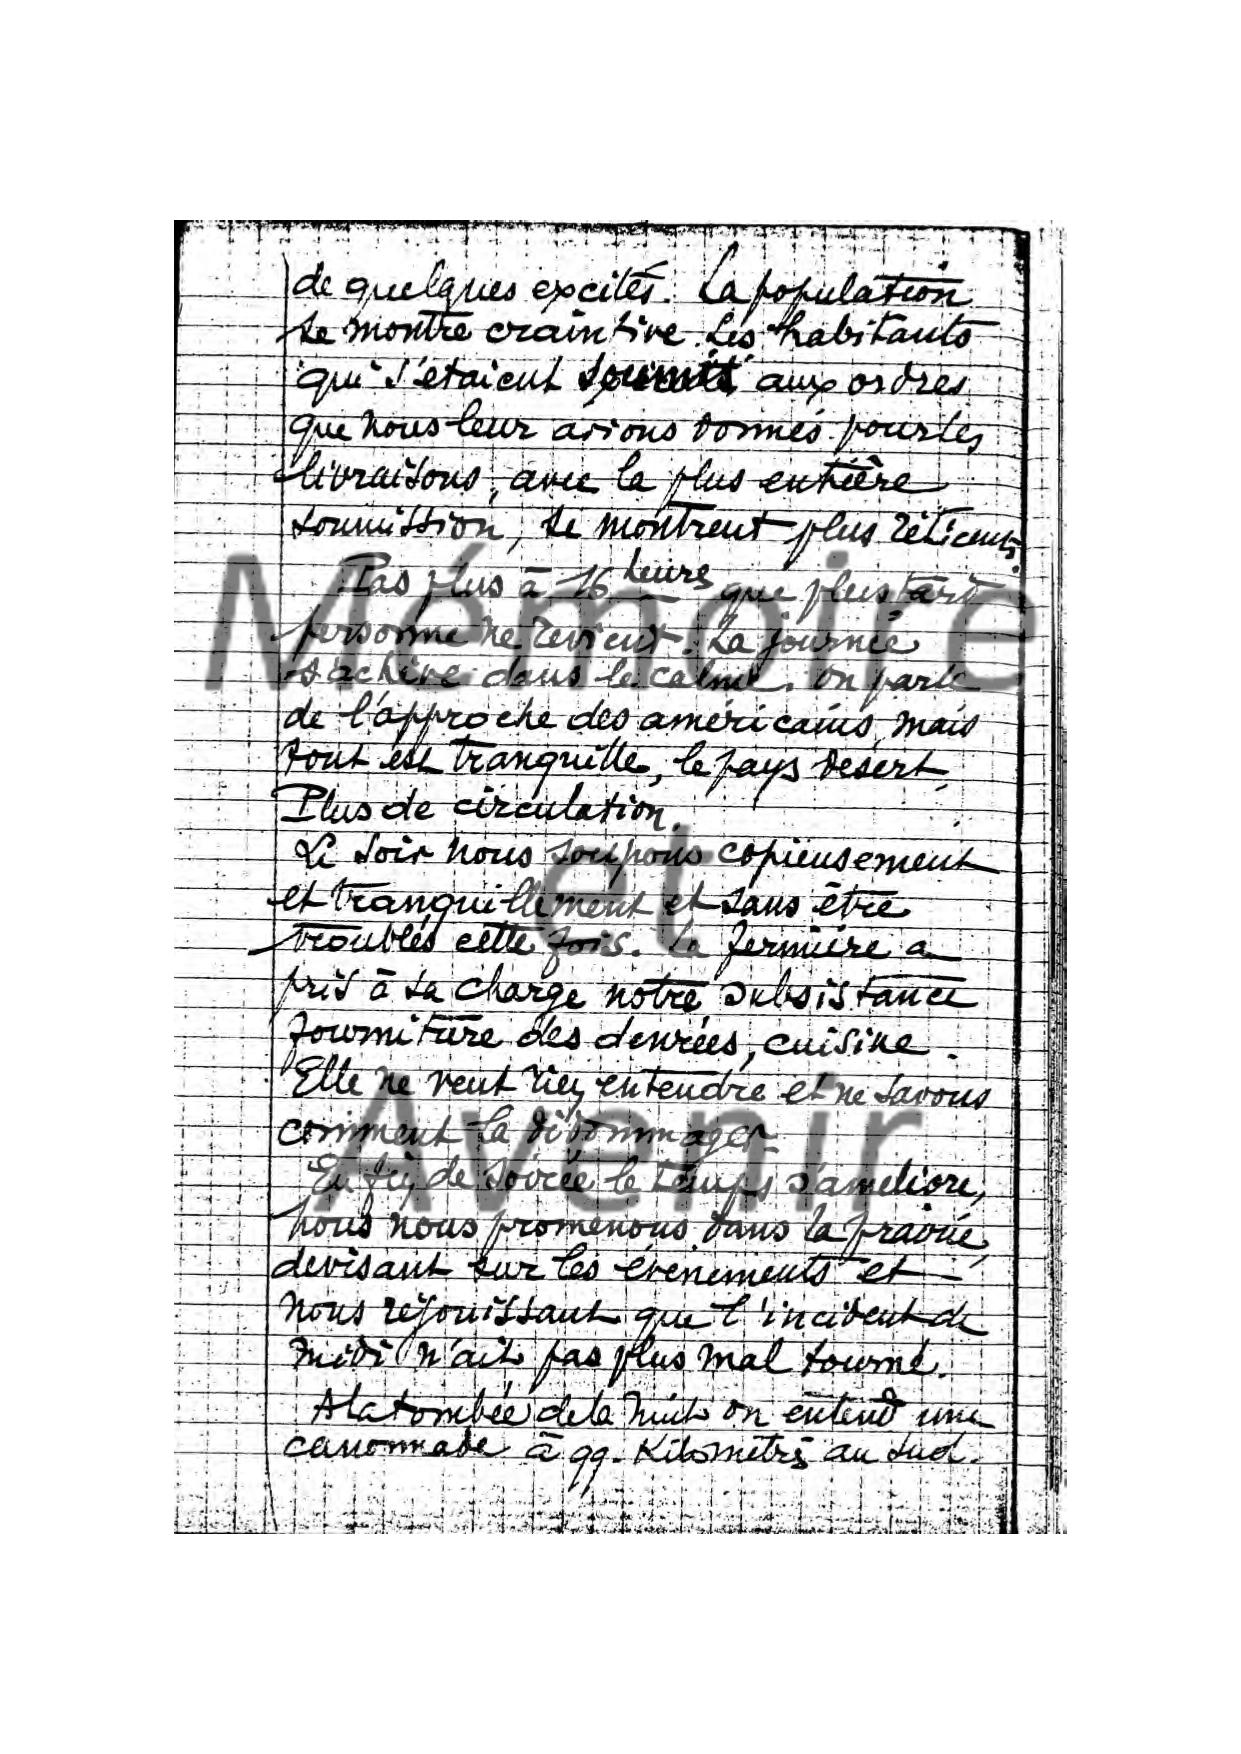 de quelques excités. La population
se montre craintive. Les habitants
qui s'étaient soumis aux ordres
que nous leur avions donnés pour les
livraisons, avec la plus entière
soumission, se montrent plus réticents.
Pas plus à 16 heures que plus tard
personne ne revient. La journée
s'achève dans le calme. On parle
de l'approche des américains, mais
tout est tranquille, le pays désert.
Plus de circulation.
Le soir nous soupons copieusement
et tranquillement et sans être
troublés cette fois. La fermière a
pris à sa charge notre subsistance
fourniture des denrées, cuisine.
Elle ne veut rien entendre et ne savons
comment la dédommager
En fin de soirée le temps s'améliore,
nous nous promenons dans la prairie,
devisant sur les évènements et
nous réjouissant que l'incident de
midi n'ait pas plus mal tourné.
A la tombée de la nuit on entend une
canonnade à qq. kilomètres au sud.
Mémoire
et
Avenir